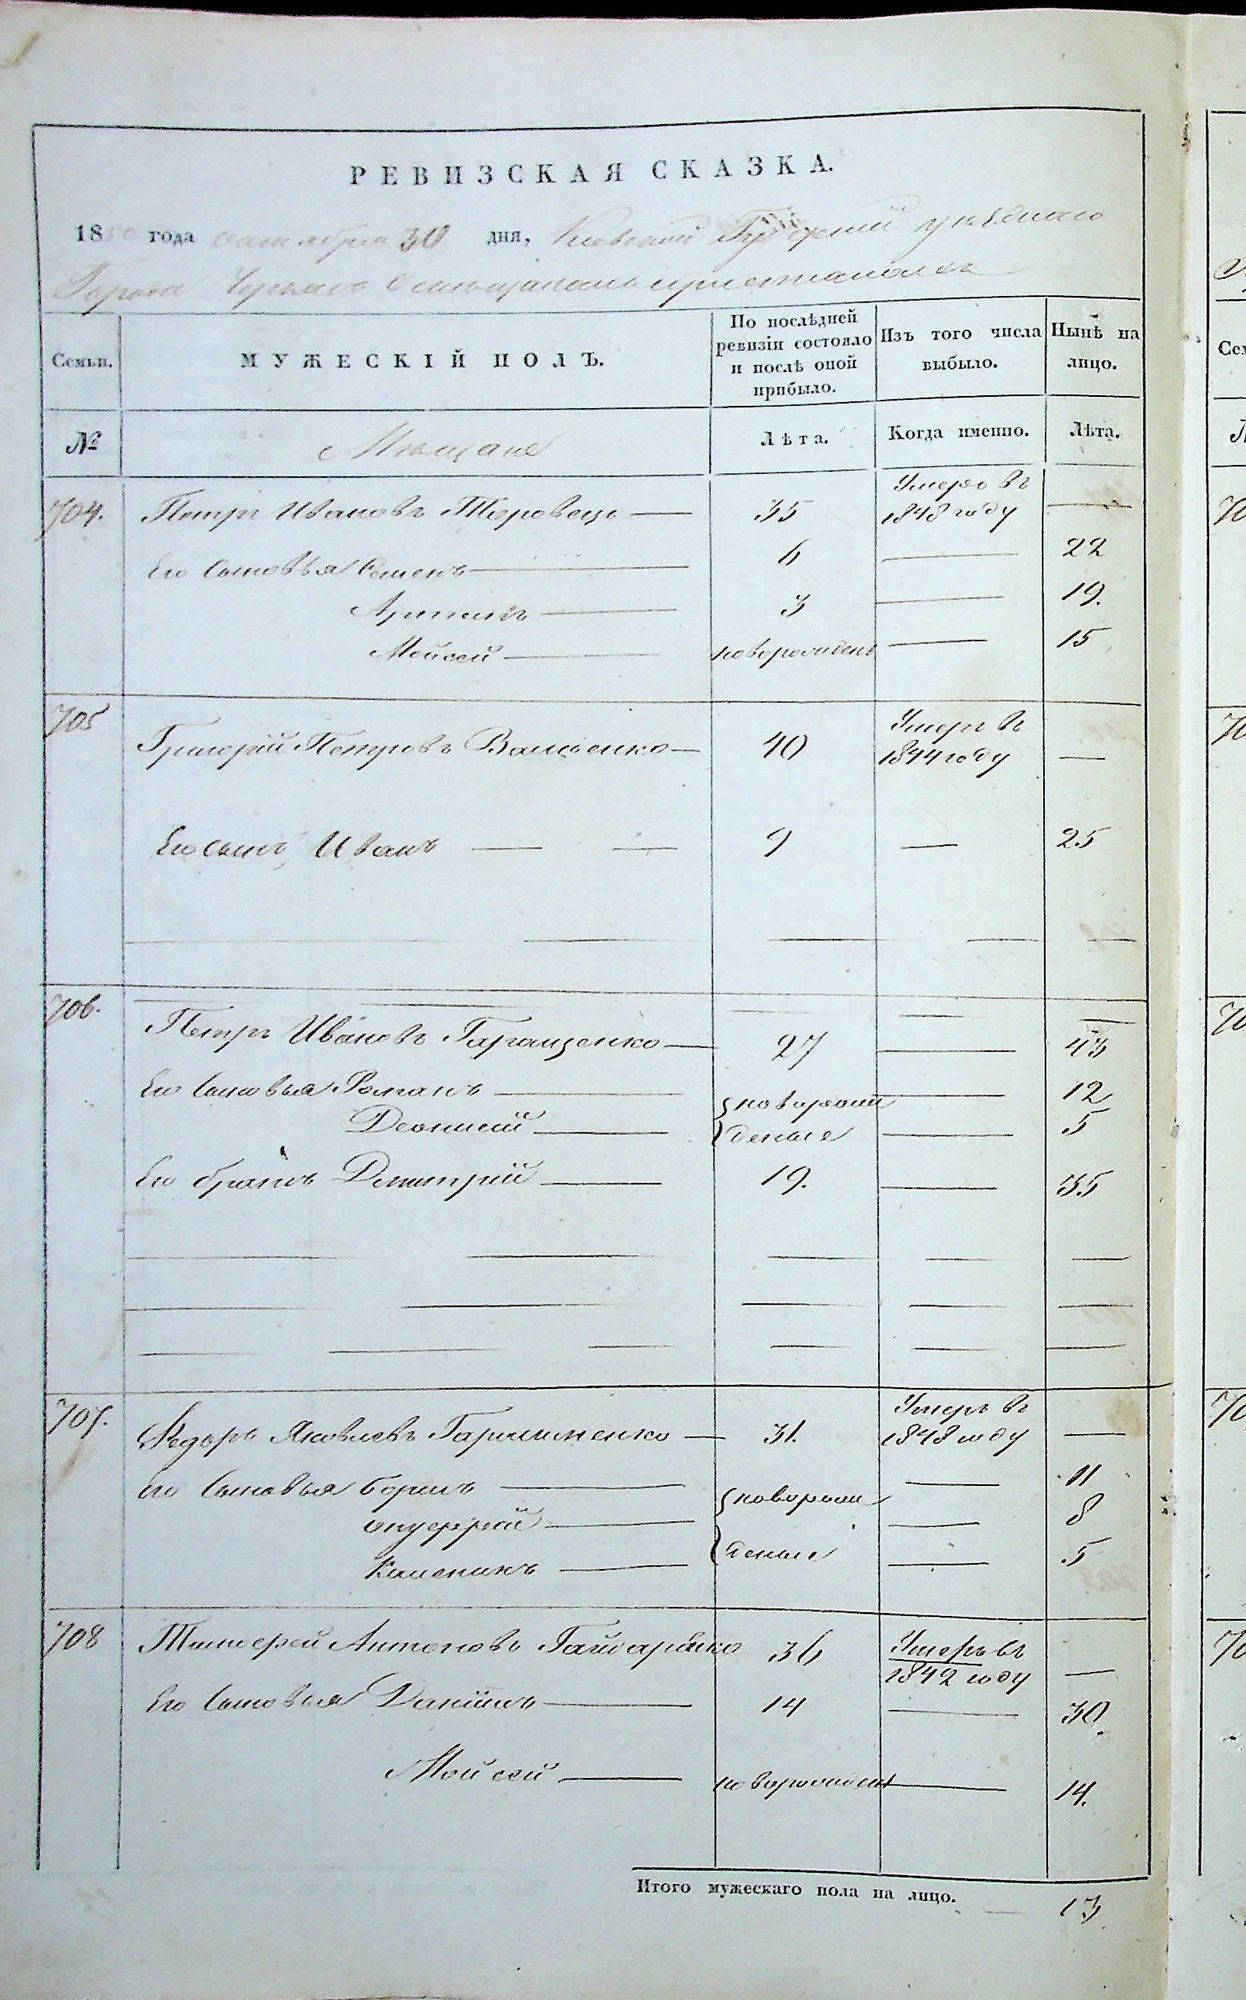 РЕВИЗСКАЯ СКАЗКА.
1850 года октября 30 дня, Киевской Губерний уѣзднаго
Города
Семьи. МУЖЕСКІЙ ПОЛЪ. По послѣдней ревизіи состояло и послѣ оной прибыло. Изъ того числа выбыло. Нынѣ на лицо.
№ Мѣщане Лѣта. Когда именно. Лѣта.
704. Петръ Ивановъ Торовецъ 35 Умеръ въ 1848 году
Его Сыновья Семенъ 6 22
3 19.
Мойсей новорожденъ 15
705 Григорій Петровъ 40 Умеръ въ 1844 году
Его сынъ Иванъ 9 25
706. Петръ Ивановъ Гаращенко 27 43
Его Сыновья Романъ новорож 12
Деонисій деные 5
Его братъ Дмитрій 19. 35
707. Федоръ Яковлевъ 31. Умеръ въ 1848 году
Его Сыновья Борисъ новорож 11
Онуфрій 8
деные 5
708 Тимофей Антоновъ 36 Умеръ въ 1842 году
Его Сыновья Даніилъ 14 30
Мойсей новорожден 14.
Итого мужескаго пола на лицо. 13